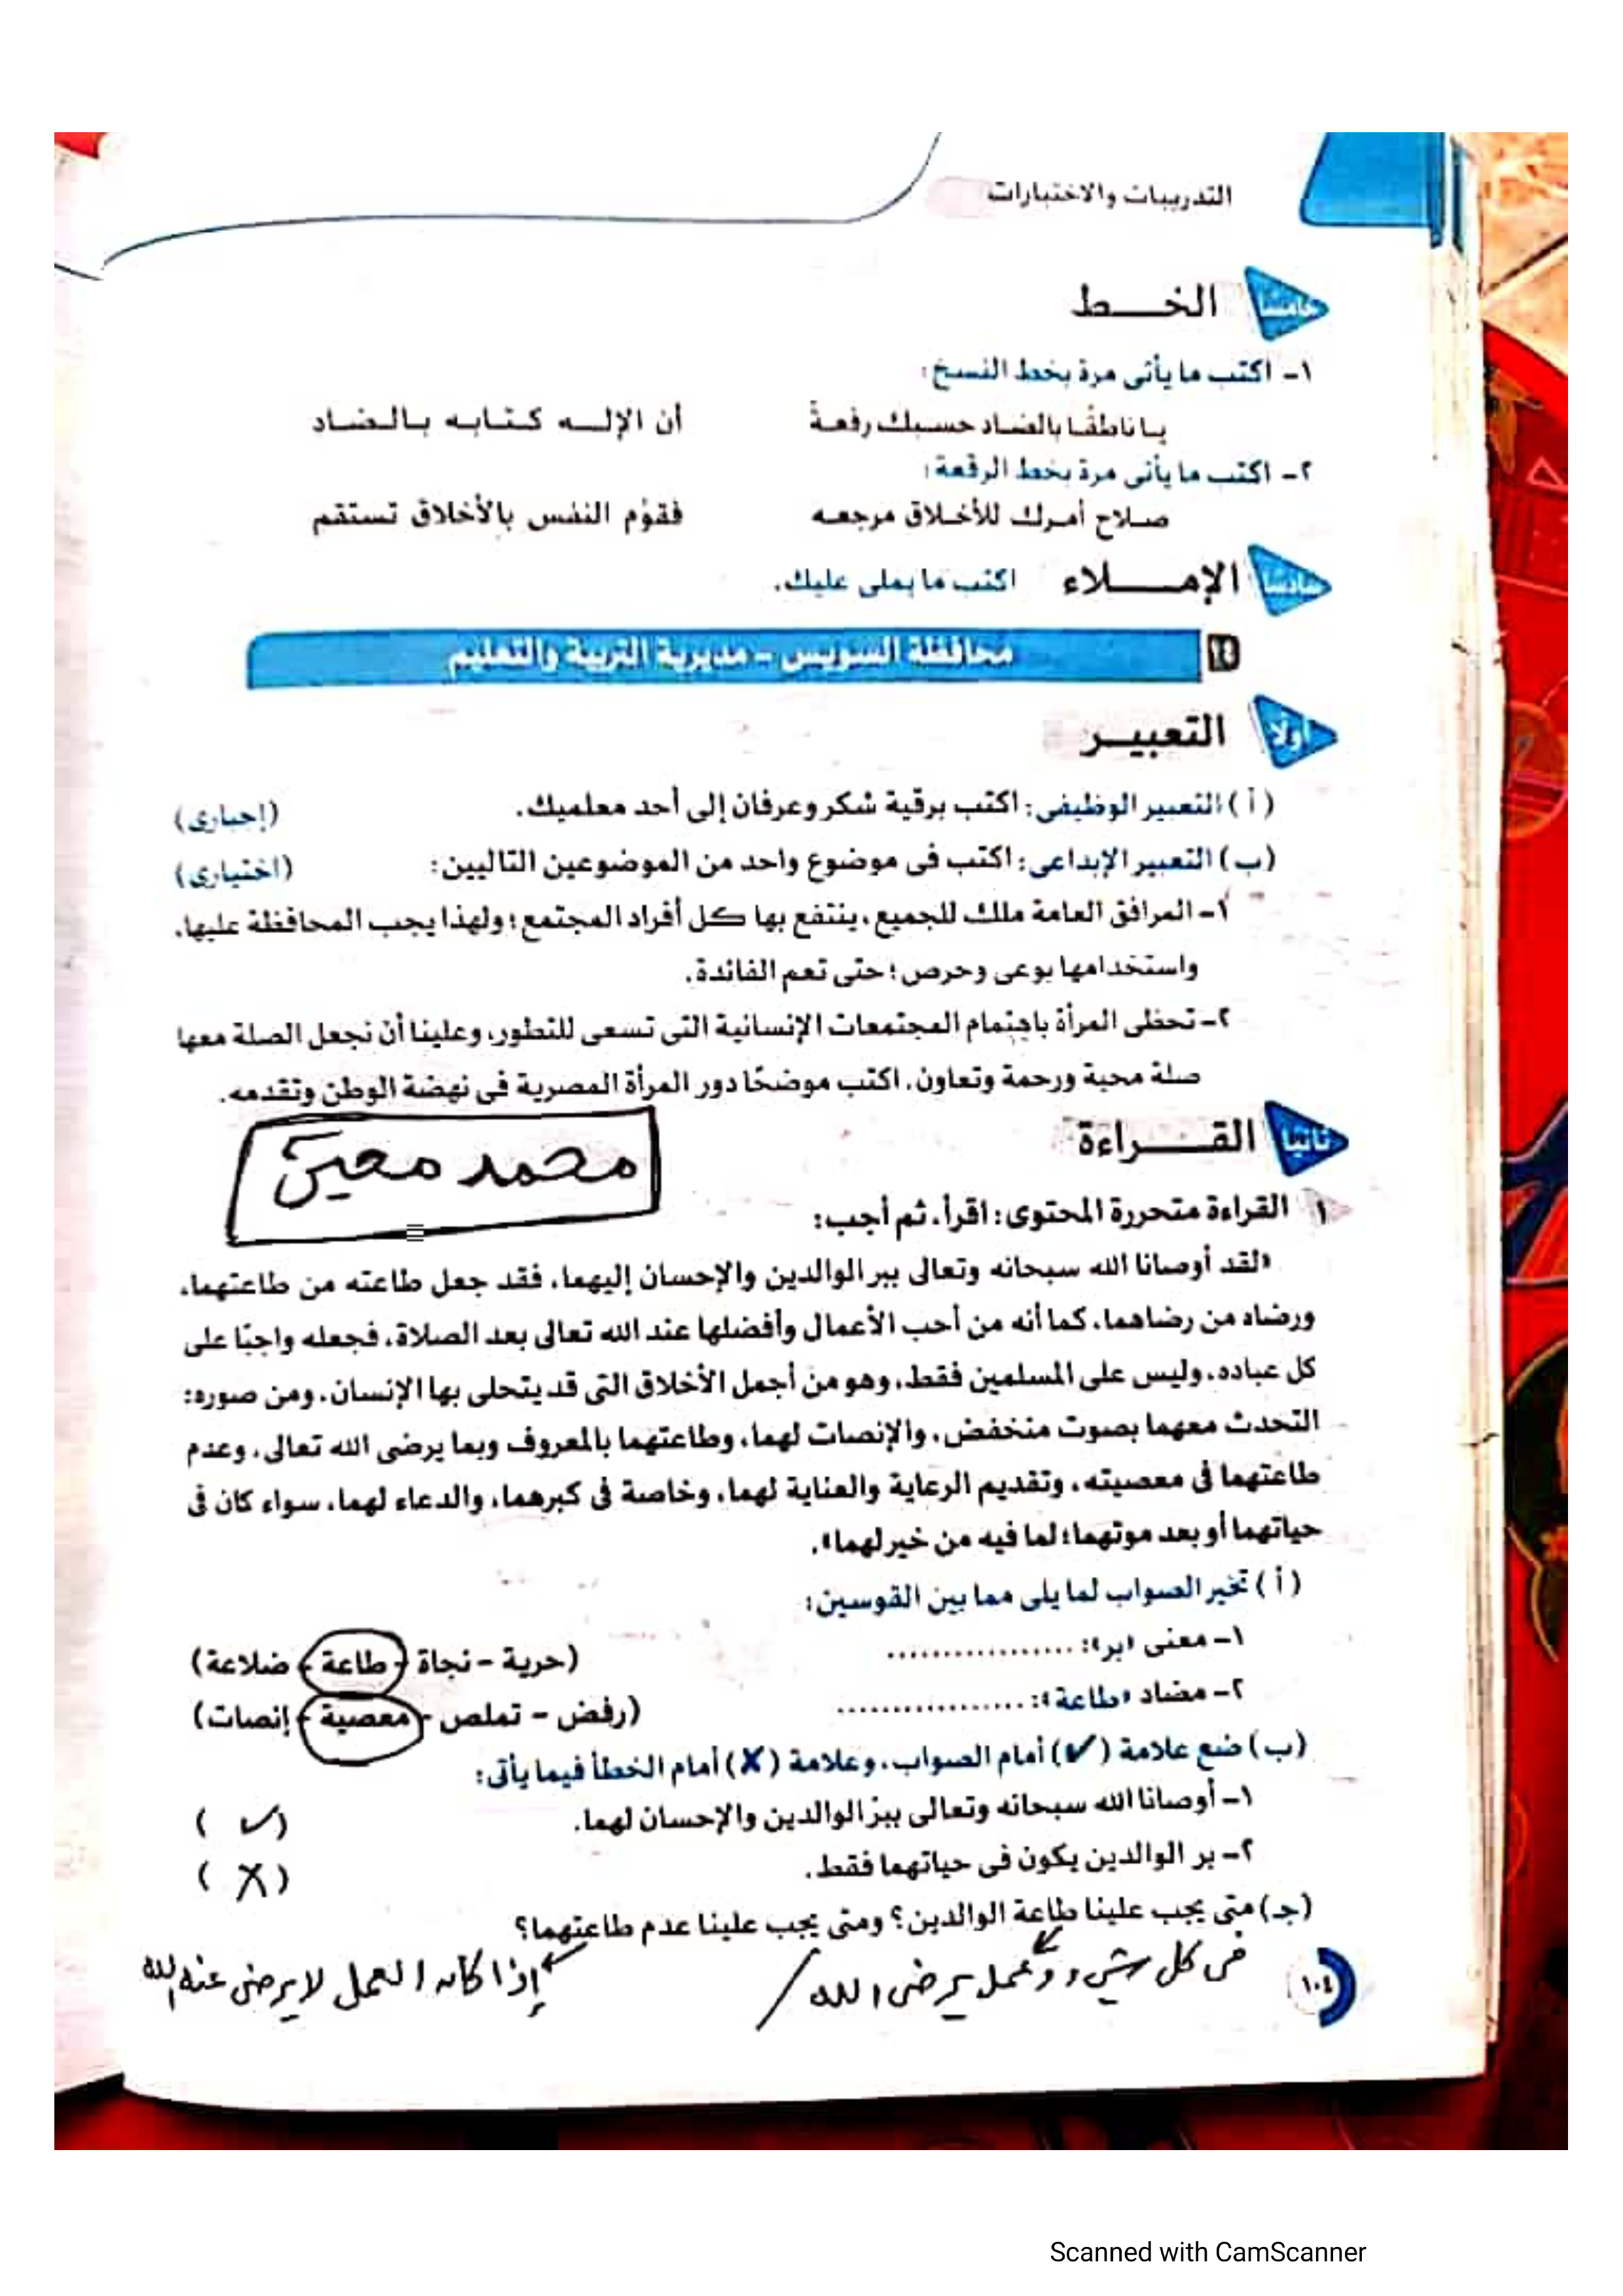 التدريبات والاختبارات
خامسًا الخـــط
١- اكتب ما يأتى مرة بخط النسخ:
يا ناطقًا بالضاد حسبك رفعةً أن الإلـــه كتابه بالضاد
٢- اكتب ما يأتى مرة بخط الرقعة:
صلاح أمرك للأخلاق مرجعه فقوِّم النفس بالأخلاق تستقم
سادسًا الإمـــلاء اكتب ما يملى عليك.
١٤ محافظة السويس - مديرية التربية والتعليم
أولًا التعبيـر
(أ) التعبير الوظيفى: اكتب برقية شكر وعرفان إلى أحد معلميك. (إجبارى)
(ب) التعبير الإبداعى: اكتب فى موضوع واحد من الموضوعين التاليين: (اختيارى)
١- المرافق العامة ملك للجميع، ينتفع بها كل أفراد المجتمع؛ ولهذا يجب المحافظة عليها،
واستخدامها بوعى وحرص؛ حتى تعم الفائدة.
٢- تحظى المرأة باهتمام المجتمعات الإنسانية التى تسعى للتطور، وعلينا أن نجعل الصلة معها
صلة محبة ورحمة وتعاون. اكتب موضحًا دور المرأة المصرية فى نهضة الوطن وتقدمه.
ثانيًا القـــراءة
محمد معين
١ القراءة متحررة المحتوى: اقرأ، ثم أجب:
«لقد أوصانا الله سبحانه وتعالى ببر الوالدين والإحسان إليهما، فقد جعل طاعته من طاعتهما،
ورضاه من رضاهما، كما أنه من أحب الأعمال وأفضلها عند الله تعالى بعد الصلاة، فجعله واجبًا على
كل عباده، وليس على المسلمين فقط، وهو من أجمل الأخلاق التى قد يتحلى بها الإنسان، ومن صوره:
التحدث معهما بصوت منخفض، والإنصات لهما، وطاعتهما بالمعروف وبما يرضى الله تعالى، وعدم
طاعتهما فى معصيته، وتقديم الرعاية والعناية لهما، وخاصة فى كبرهما، والدعاء لهما، سواء كان فى
حياتهما أو بعد موتهما؛ لما فيه من خير لهما».
(أ) تخير الصواب لما يلى مما بين القوسين:
١- معنى «بر»: .................. (حرية - نجاة - طاعة - ضلاعة)
٢- مضاد «طاعة»: .................. (رفض - تملص - معصية - إنصات)
(ب) ضع علامة (✓) أمام الصواب، وعلامة (✗) أمام الخطأ فيما يأتى:
١- أوصانا الله سبحانه وتعالى ببرّ الوالدين والإحسان لهما. (✓)
٢- بر الوالدين يكون فى حياتهما فقط. (X)
(جـ) متى يجب علينا طاعة الوالدين؟ ومتى يجب علينا عدم طاعتهما؟
فى كل شيء وعمل يرضى الله / إذا كان العمل لا يرضى عنه الله
١٠٤
Scanned with CamScanner